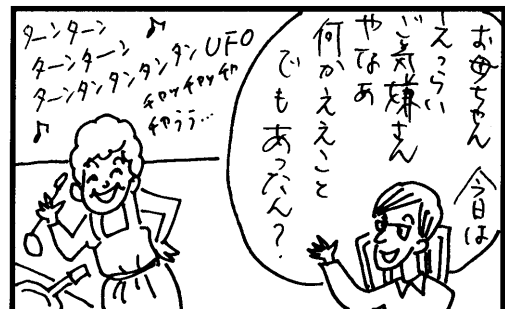 お母ちゃん 今日は
えっらい
ご気嫌さん
やなあ
何かええこと
でもあったん?
ターンターン♪
ターンターン UFO
ターンタンタンタンタン
チャッチャッチャ
チャララ…
♪